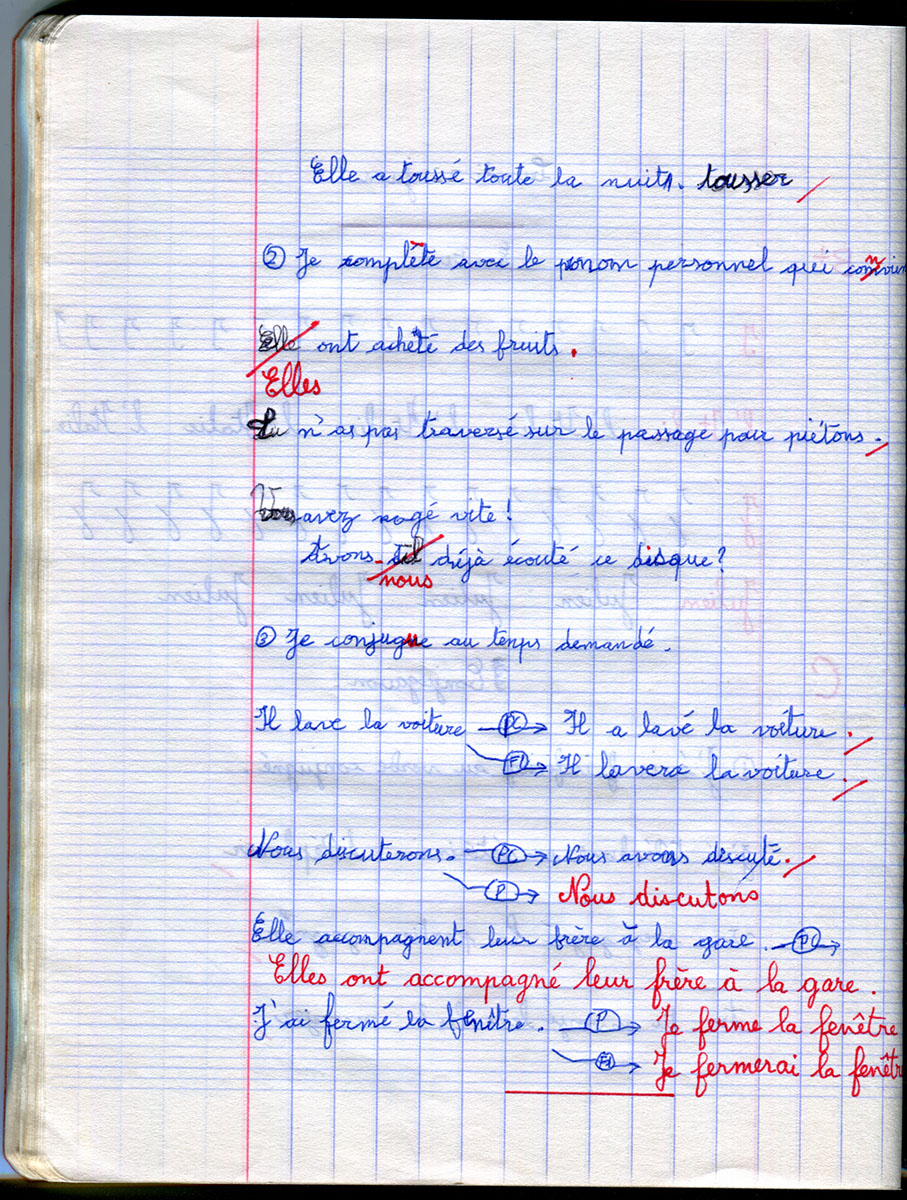 Elle a toussé toute la nuits. tousser
② Je complète avec le pronom personnel qui convien
Elle ont acheté des fruits.
Elles
Tu n'as pas traversé sur le passage pour piétons.
Vous avez nagé vite !
Avons-til déjà écouté ce disque ?
nous
③ Je conjugue au temps demandé.
Il lave la voiture PC Il a lavé la voiture.
F1 Il lavera la voiture.
Nous discuterons. PC Nous avons discuté.
P Nous discutons
Elle accompagnent leur frère à la gare. PC
Elles ont accompagné leur frère à la gare.
J'ai fermé la fenître. P Je ferme la fenêtre
F1 Je fermerai la fenêtr